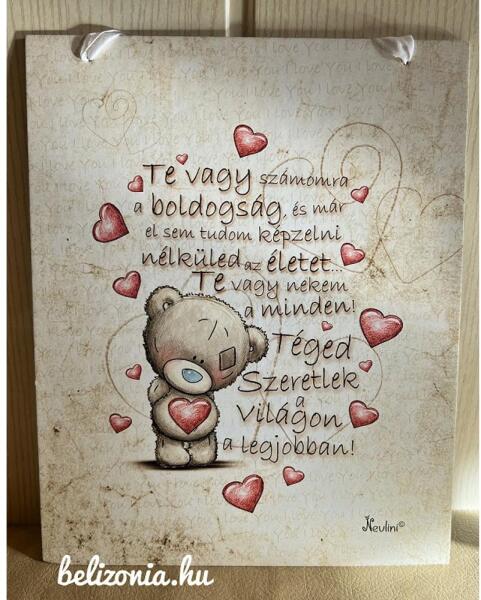 Te vagy számomra
a boldogság, és már
el sem tudom képzelni
nélküled az életet...
Te vagy nekem
a minden!
Téged
Szeretlek
a
Világon
a legjobban!
Nevlini©
belizonia.hu